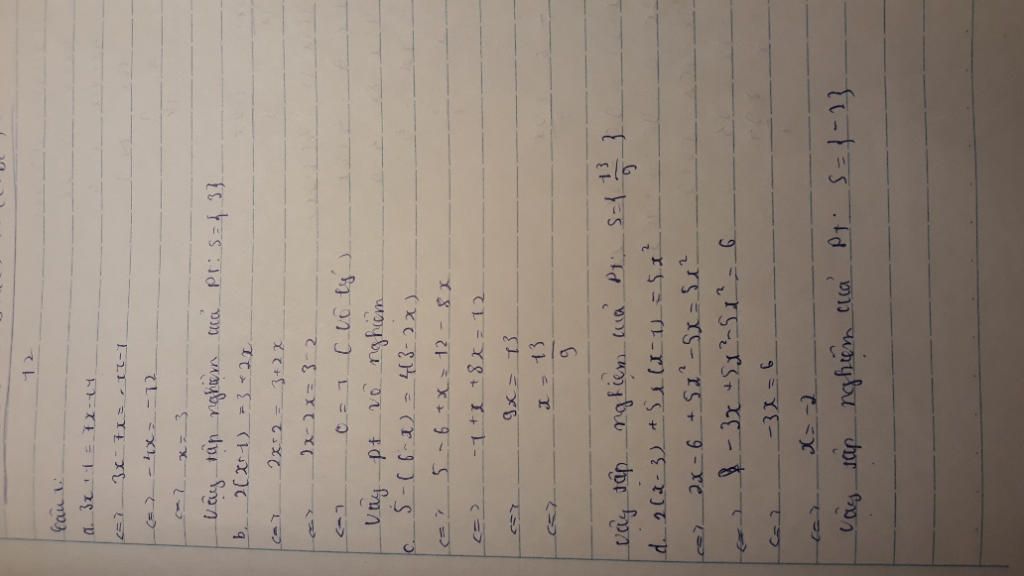 12
Câu 1:
a. 3x + 1 = 7x - 11
<=> 3x - 7x = -11 - 1
<=> -4x = -12
<=> x = 3
Vậy tập nghiệm của pt: S = { 3 }
b. 2(x+1) = 3 + 2x
<=> 2x + 2 = 3 + 2x
<=> 2x - 2x = 3 - 2
<=> 0 = 1 (vô lý)
Vậy pt vô nghiệm
c. 5 - (6 - x) = 4(3 - 2x)
<=> 5 - 6 + x = 12 - 8x
<=> -1 + x + 8x = 12
<=> 9x = 13
<=> x = 13/9
Vậy tập nghiệm của pt: S = { 13/9 }
d. 2(x - 3) + 5x(x - 1) = 5x²
<=> 2x - 6 + 5x² - 5x = 5x²
<=> -3x + 5x² - 5x² = 6
<=> -3x = 6
<=> x = -2
Vậy tập nghiệm của pt: S = { -2 }